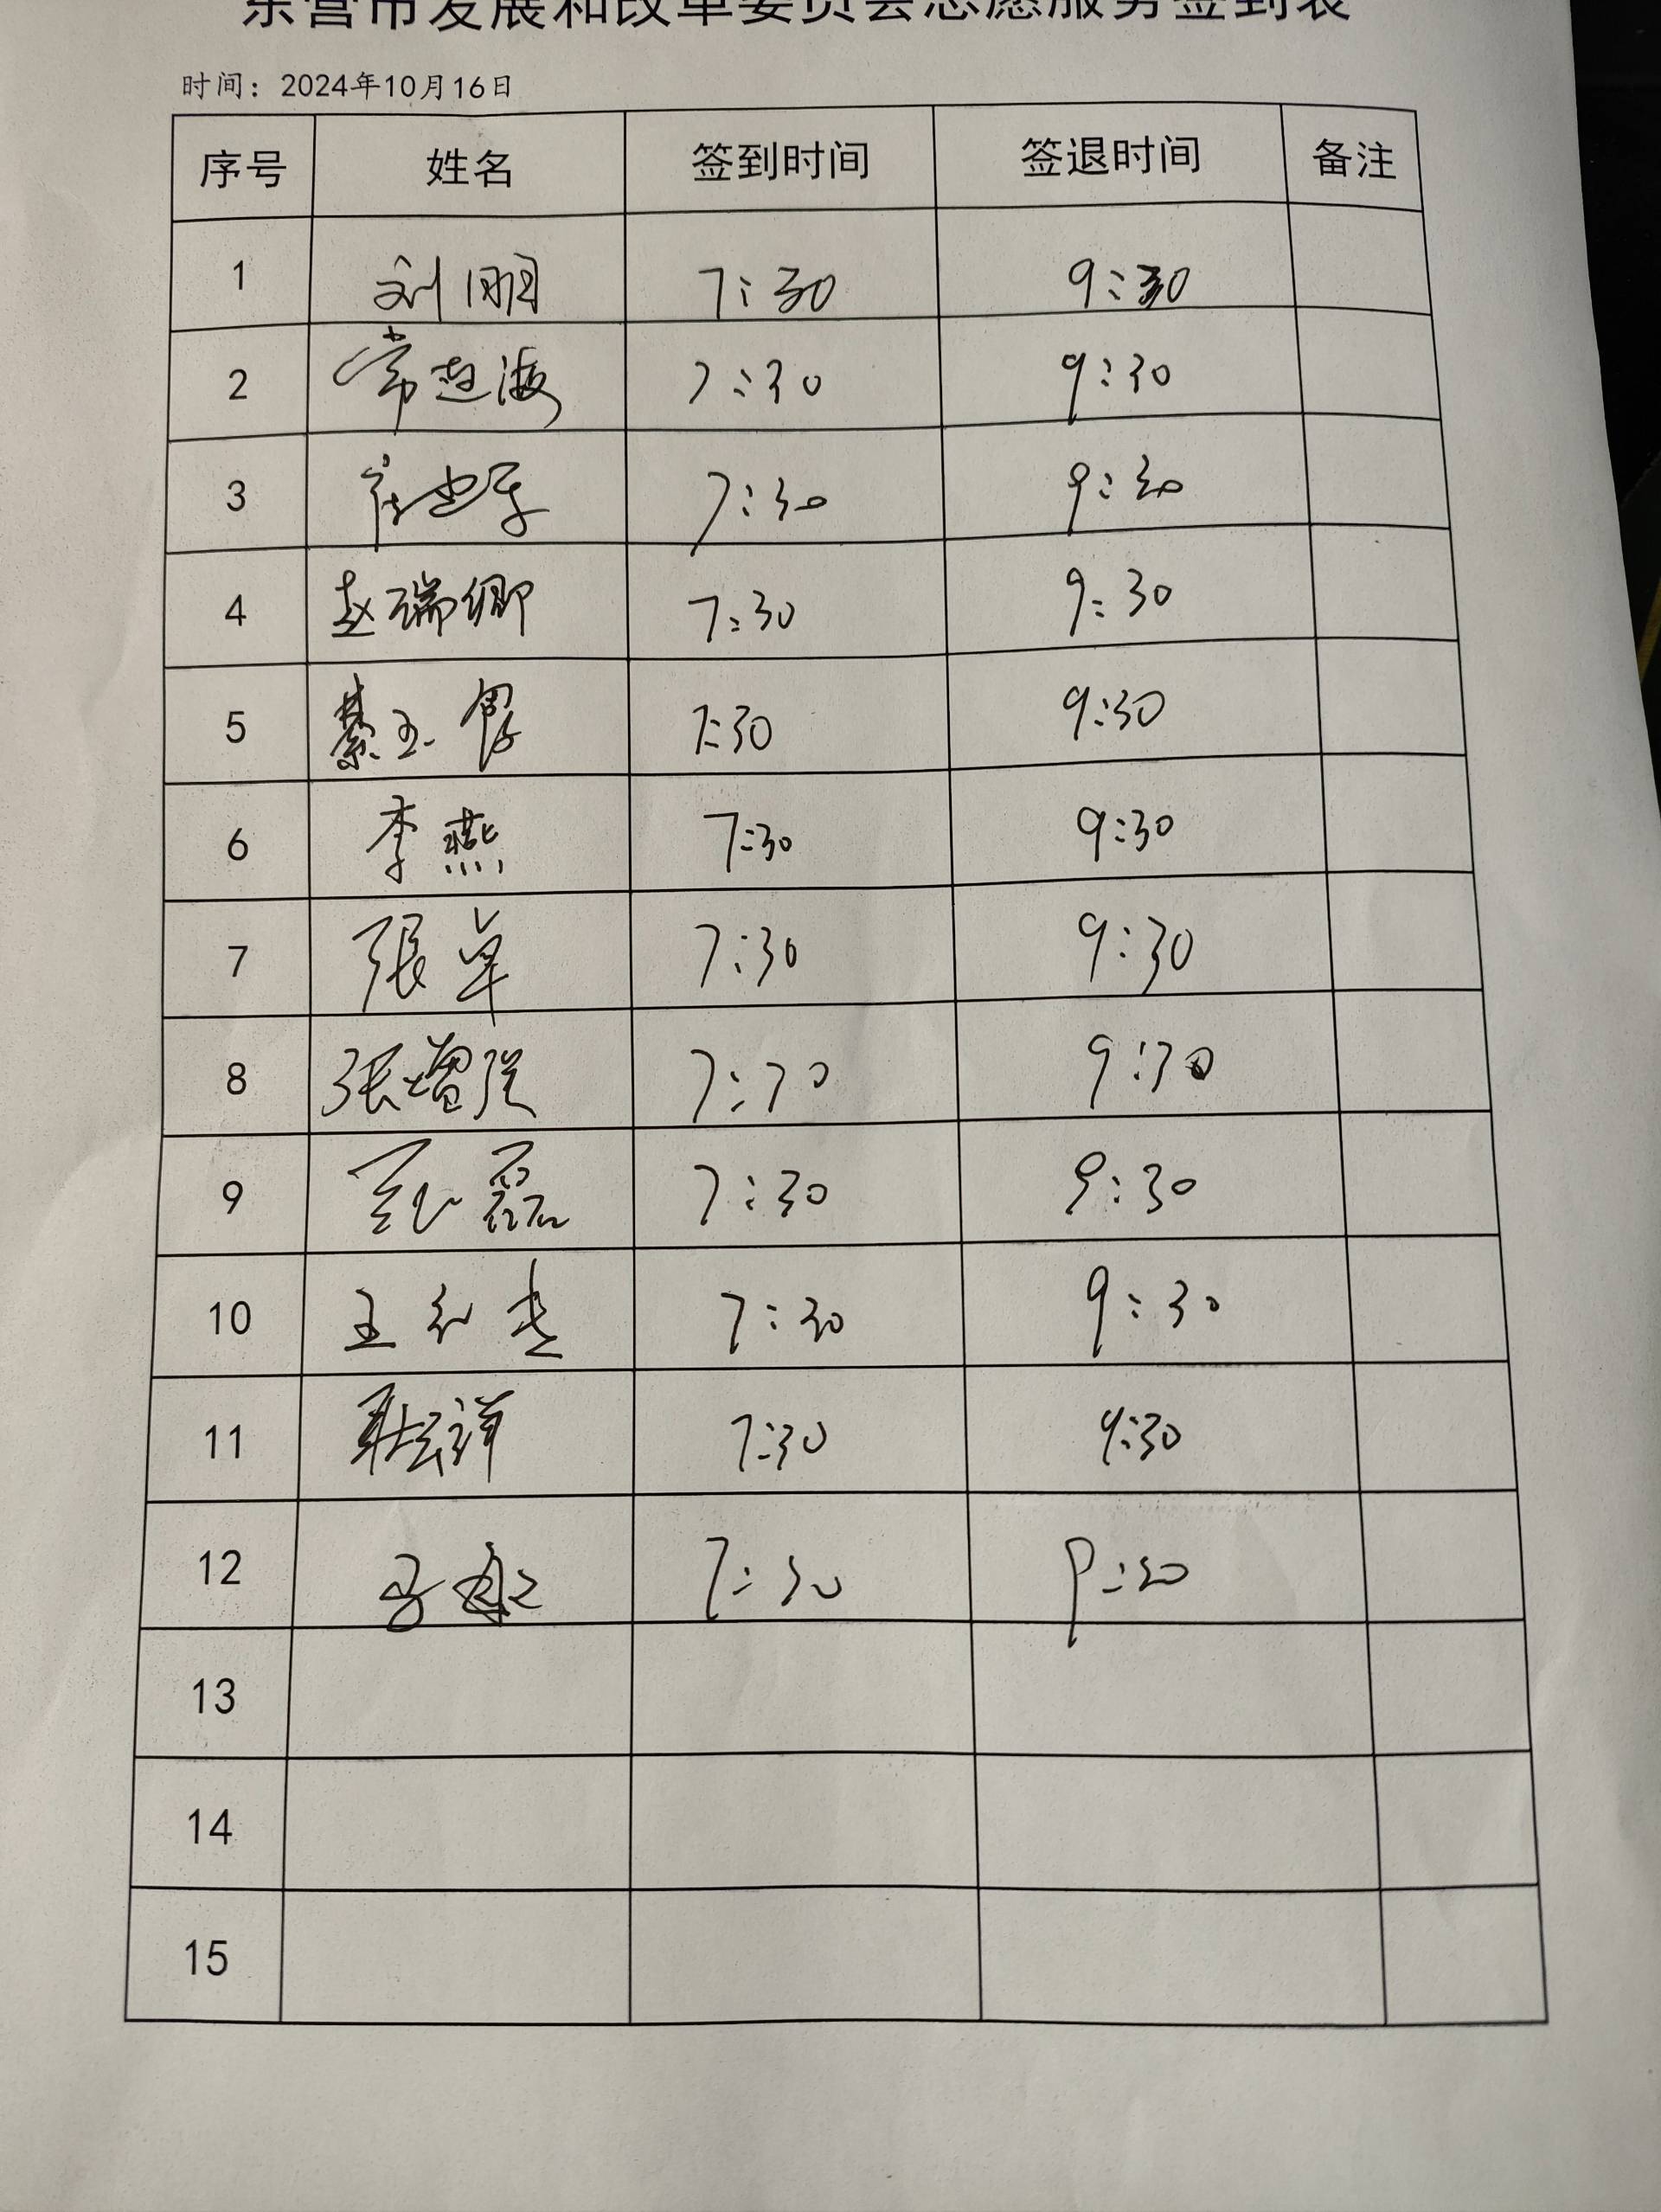 东营市发展和改革委员会志愿服务签到表
时间：2024年10月16日
序号 姓名 签到时间 签退时间 备注
1 刘朋 7:30 9:30
2 常 海 7:30 9:30
3 7:30 9:30
4 赵瑞卿 7:30 9:30
5 綦玉 7:30 9:30
6 李燕 7:30 9:30
7 張卓 7:30 9:30
8 张增 7:30 9:30
9 磊 7:30 9:30
10 王红 7:30 9:30
11 耿云祥 7:30 9:30
12 7:30 9:30
13
14
15